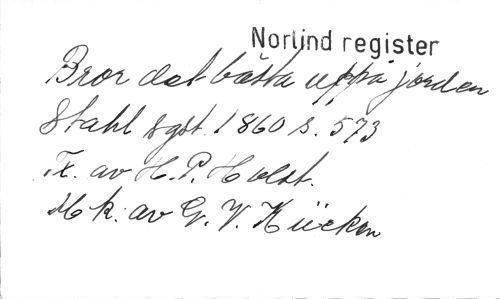 Norlind register
Bror det bästa uppå jorden
Stahl sgst. 1860 s. 573
Tx. av H. P. Holst.
Mk. av G. V. Kücken